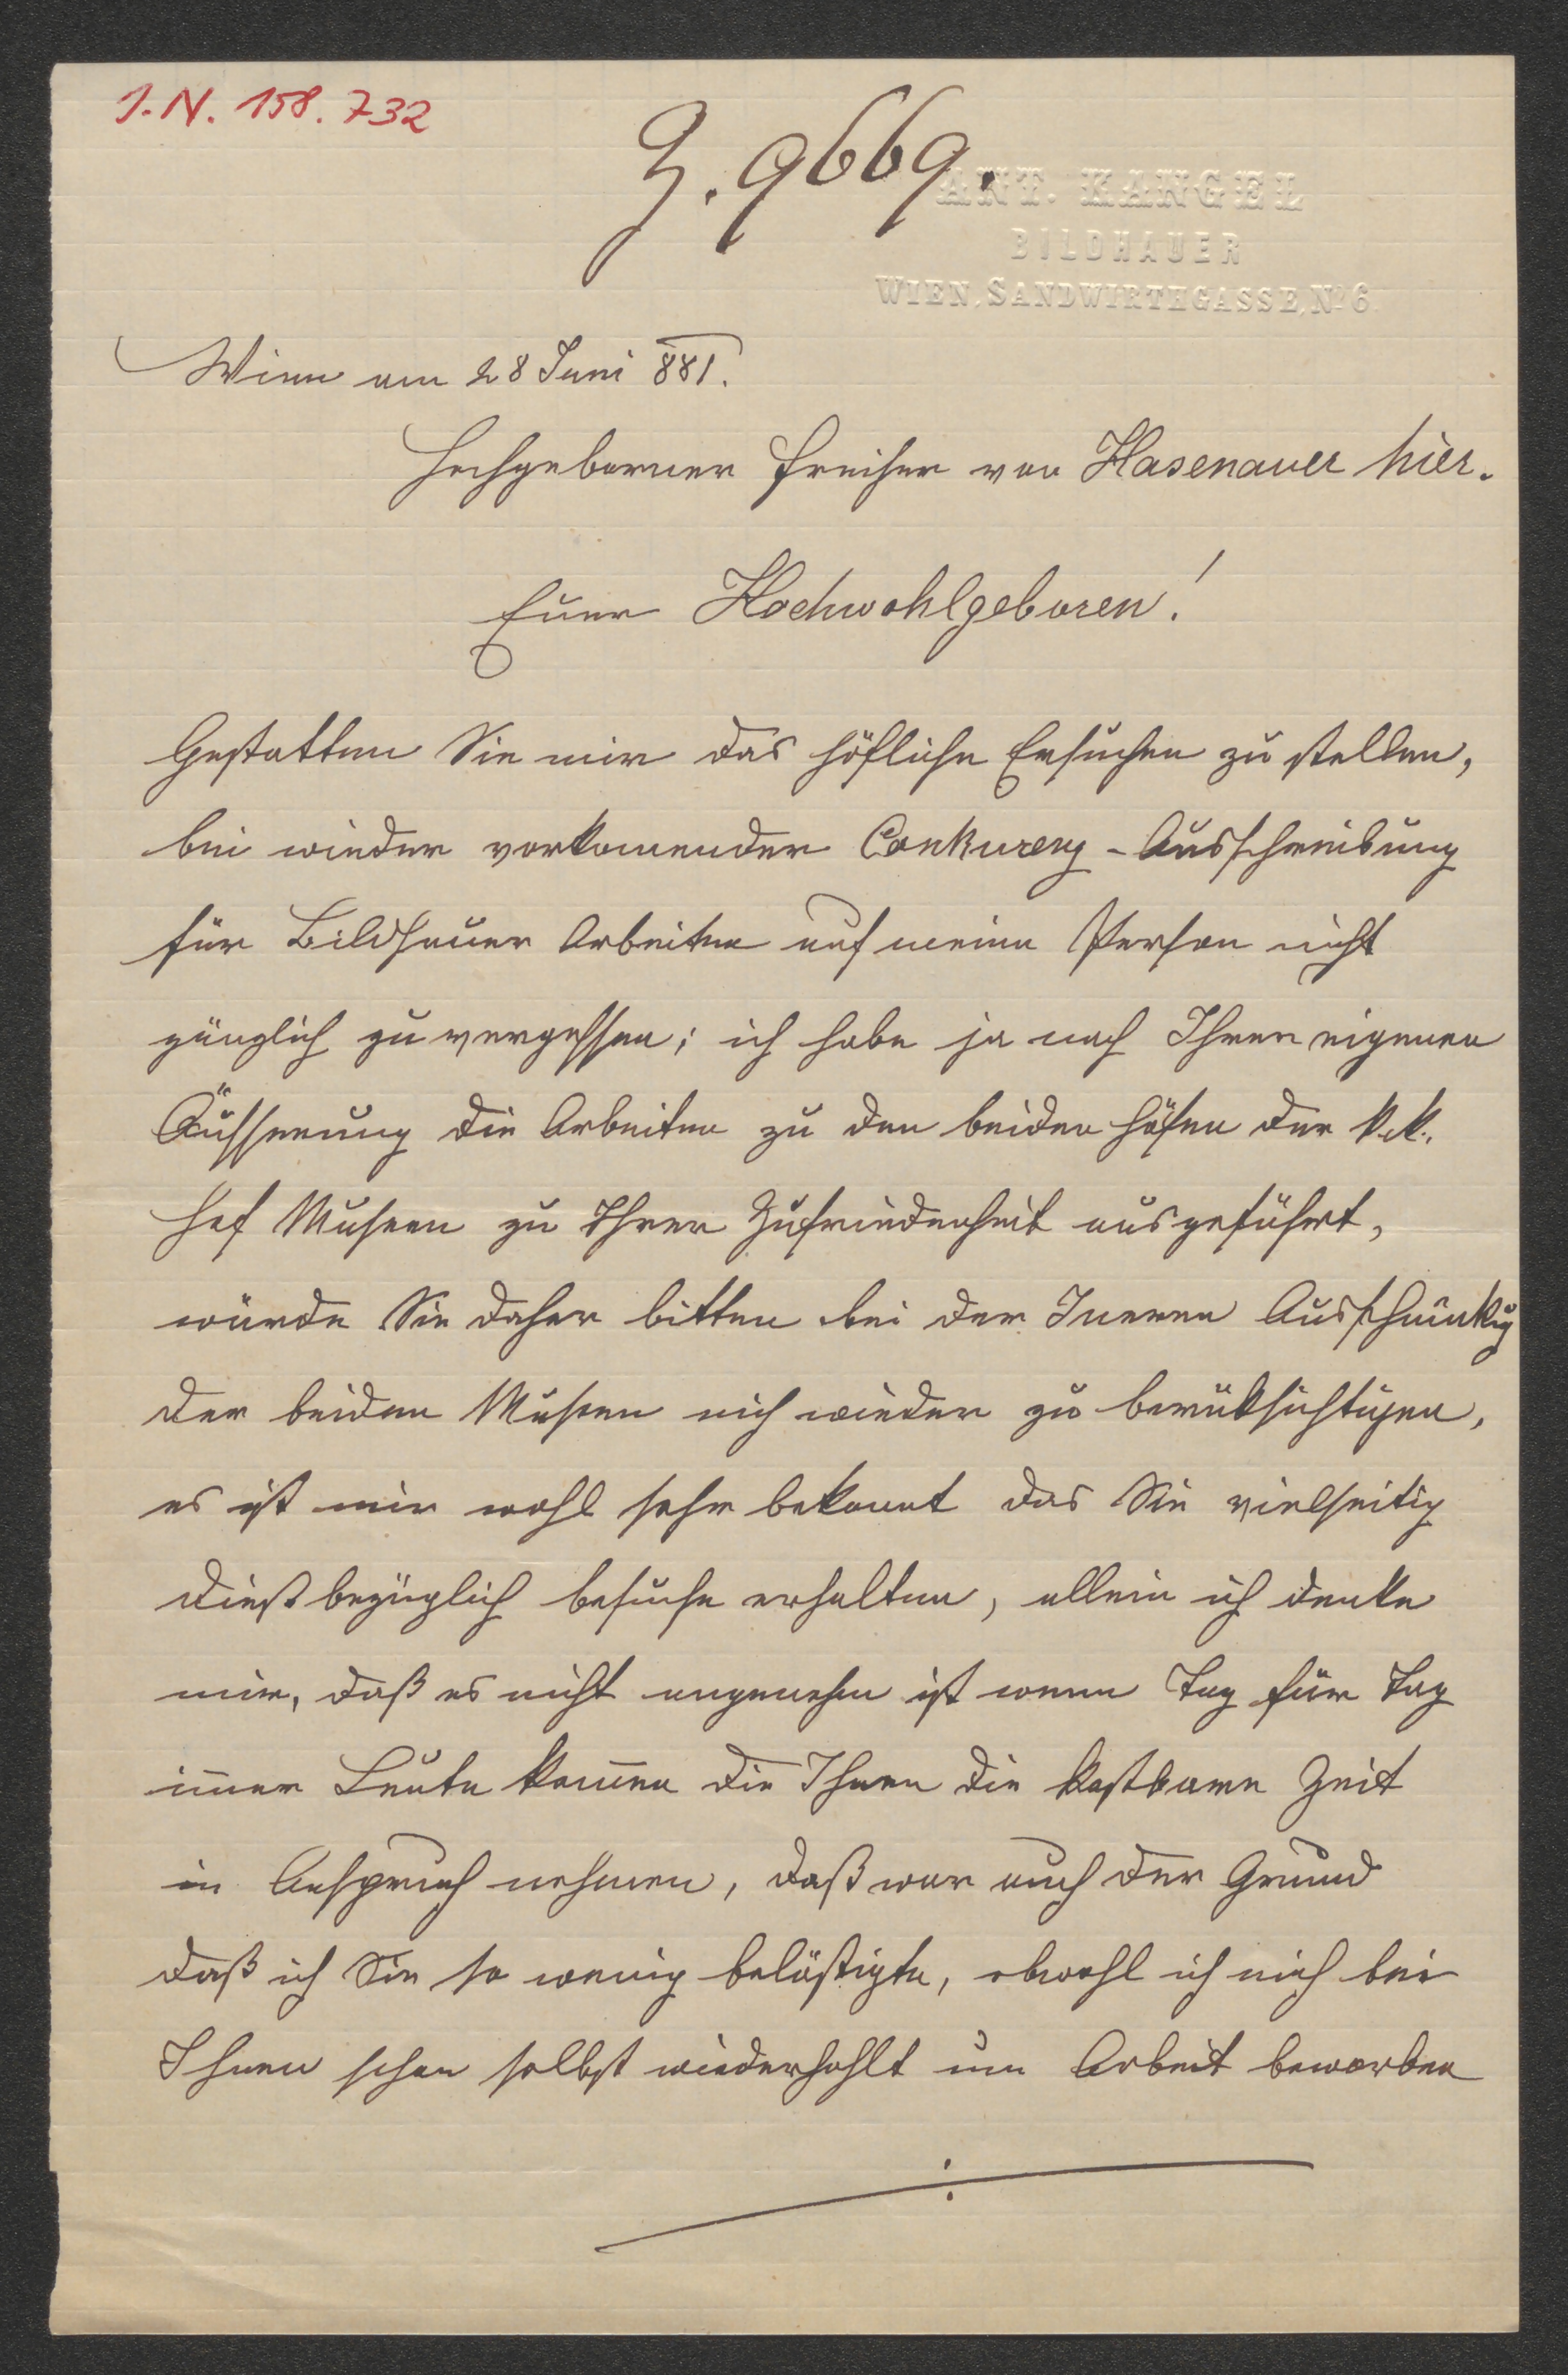 I.N. 158.732
Z. 9669.
ANT. KANGEL
BILDHAUER
WIEN, SANDWIRTHGASSE, No 6.
Wien am 28 Juni 881.
Hochgeborner Freiher von Hasenauer hier.
Euer Hochwohlgeboren!
Gestatten Sie mir das höfliche Ersuchen zu stellen,
bei wieder vorkomender Conkurenz-Ausschreibung
für Bildhauer Arbeiten auf meine Person nicht
gänzlich zu vergessen; ich habe ja nach Ihrer eigenen
Äusserung die Arbeiten zu den beiden Höfen der k.k.
Hof Museen zu Ihrer Zufriedenheit ausgeführt,
würde Sie daher bitten bei der Ineren Ausschmükg
der beiden Museen mich wieder zu berüksichtigen,
es ist mir wohl sehr bekannt das Sie vielseitig
dießbezüglich besuche erhalten, allein ich denke
mir, daß es nicht angenehm ist wenn Tag für Tag
im̅er Leute kom̅en die Ihnen die kostbare Zeit
in Anspruch nehmen, daß war auch der Grund
daß ich Sie so wenig belästigte, obwohl ich mich bei
Ihnen schon selbst wiederhohlt um Arbeit beworben